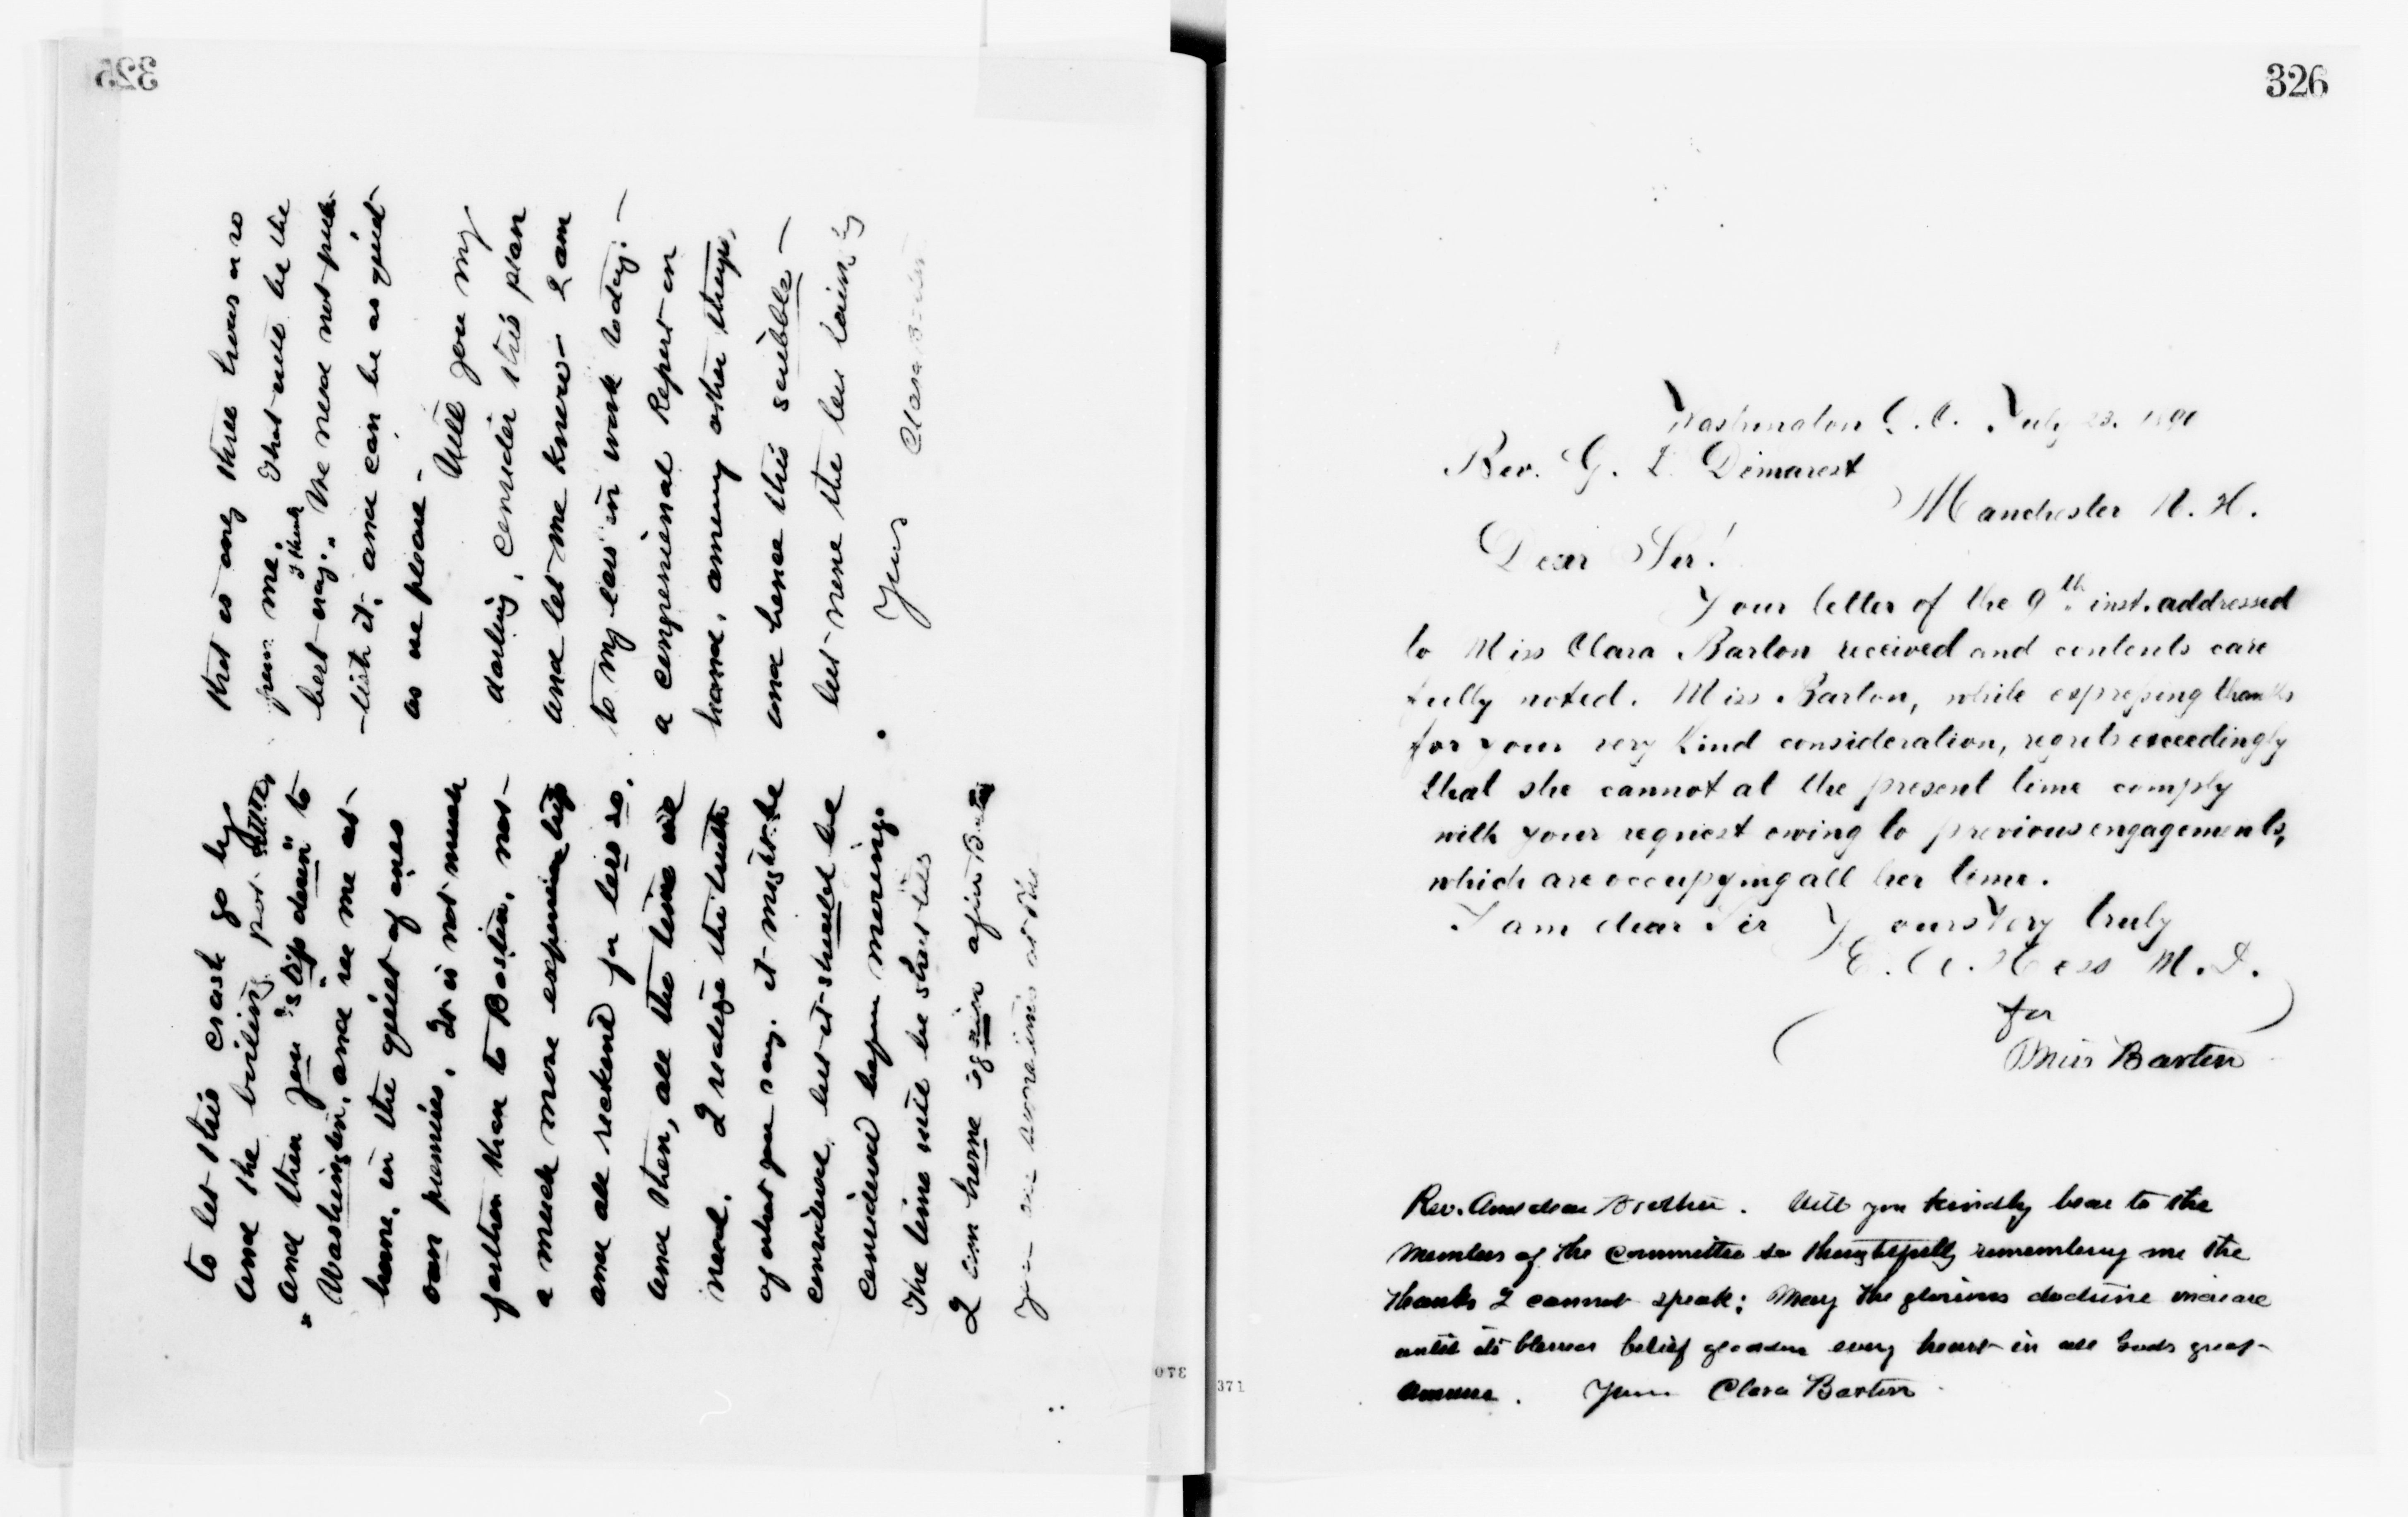 325
to let this crash go by
and the boiling pot settle,
and then you "slip down" to
"Washington, and see me at
home, in the quiet of ones
own premises. It is not much
farther than to Boston, not
a much more expensive trip
and all reckoned for less so.
and then, all the time we
need. I realize the truth
of what you say. it might be
considered, but it should be
considered before moving.
The time will be short till
I am home again after
you are
that is only three hours or so
from me. That will be the
best way. I think " We need not pub-
-lish it, and can be as quiet
as we please -
Will you my
darling, consider this plan
and let me know - I am
to my ears in work today: -
a congressional Report on
hand, among other things,
and hence this scribble -
but none the less lovingly
Yours
Clara Barton
370
371
326
Washington D. C. July 23. 1890
Rev. G. L. Demarest
Manchester N. H.
Dear Sir!
Your letter of the 9th inst. addressed
to Miss Clara Barton received and contents care
fully noted. Miss Barton, while expressing thanks
for your very kind consideration, regrets exceedingly
that she cannot at the present time comply
with your request owing to previous engagements,
which are occupying all her time.
I am dear Sir Yours Very truly
E. A. Hess M. D.
( for )
Miss Barton
Rev. and dear Brother. Will you kindly bear to the
members of the Committee so thoughtfully remembering me the
thanks I cannot speak: May the glorious doctrine increase
until its blessed belief gladdens every heart in all Gods great
Yours Clara Barton